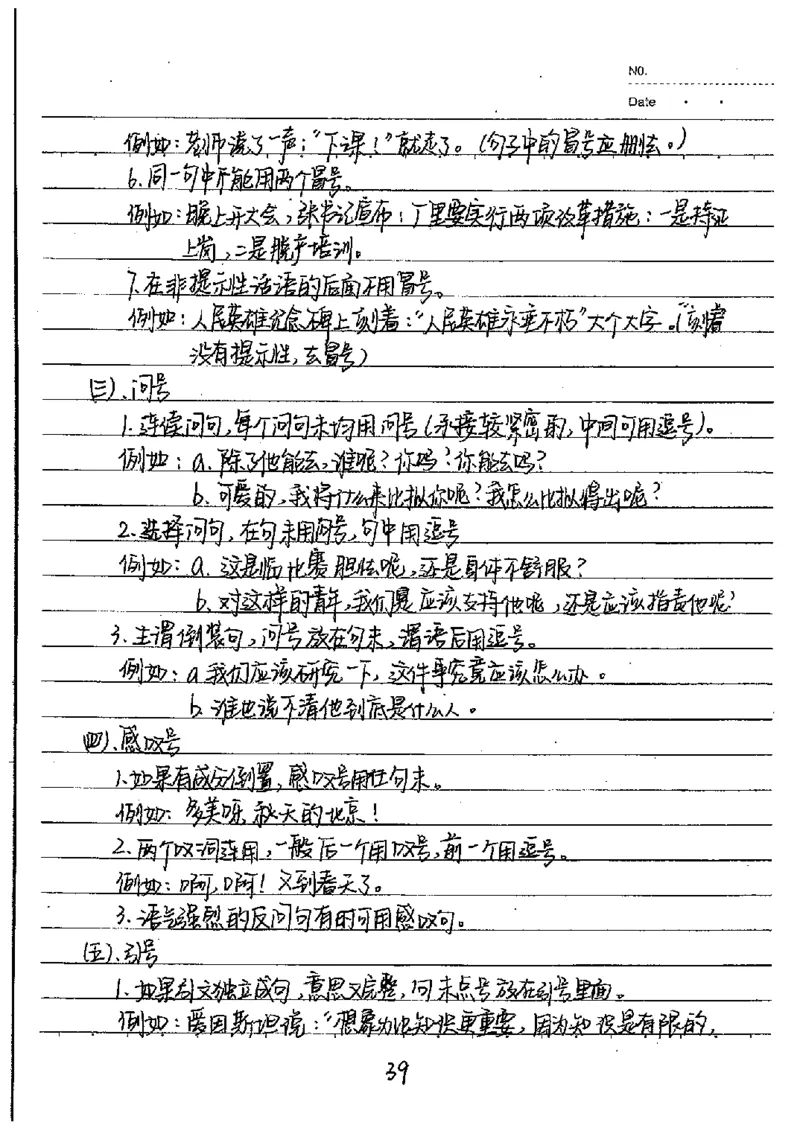 NO.
Date
例如：老师说了一声：“下课！”就走了。（句子中的冒号应删去。）
6.同一句中不能用两个冒号。
例如：晚上开大会，张书记宣布：厂里要实行两项改革措施：一是持证
上岗，二是脱产培训。
7.在非提示性话语的后面不用冒号。
例如：人民英雄纪念碑上刻着：“人民英雄永垂不朽”大个大字。（“刻着
没有提示性，去冒号）
(三).问号
1.连续问句，每个问句末均用问号（承接较紧密的，中间可用逗号）。
例如：a.除了他能去，谁呢？你吗？你能去吗？
b.可爱的，我将什么来比拟你呢？我怎么比拟得出呢？
2.选择问句，在句末用问号，句中用逗号
例如：a.这是临比赛胆怯呢，还是身体不舒服？
b.对这样的青年，我们是应该支持他呢，还是应该指责他呢？
3.主谓倒装句，问号放在句末，谓语后用逗号。
例如：a我们应该研究一下，这件事究竟应该怎么办。
b.谁也说不清他到底是什么人。
(四).感叹号
1.如果有成分倒置，感叹号用在句末。
例如：多美呀，秋天的北京！
2.两个叹词连用，一般后一个用叹号，前一个用逗号。
例如：啊，啊！又到春天了。
3.语气强烈的反问句有时可用感叹句。
(五).引号
1.如果引文独立成句，意思又完整，句末点号放在引号里面。
例如：爱因斯坦说：“想象力比知识更重要，因为知识是有限的，
39